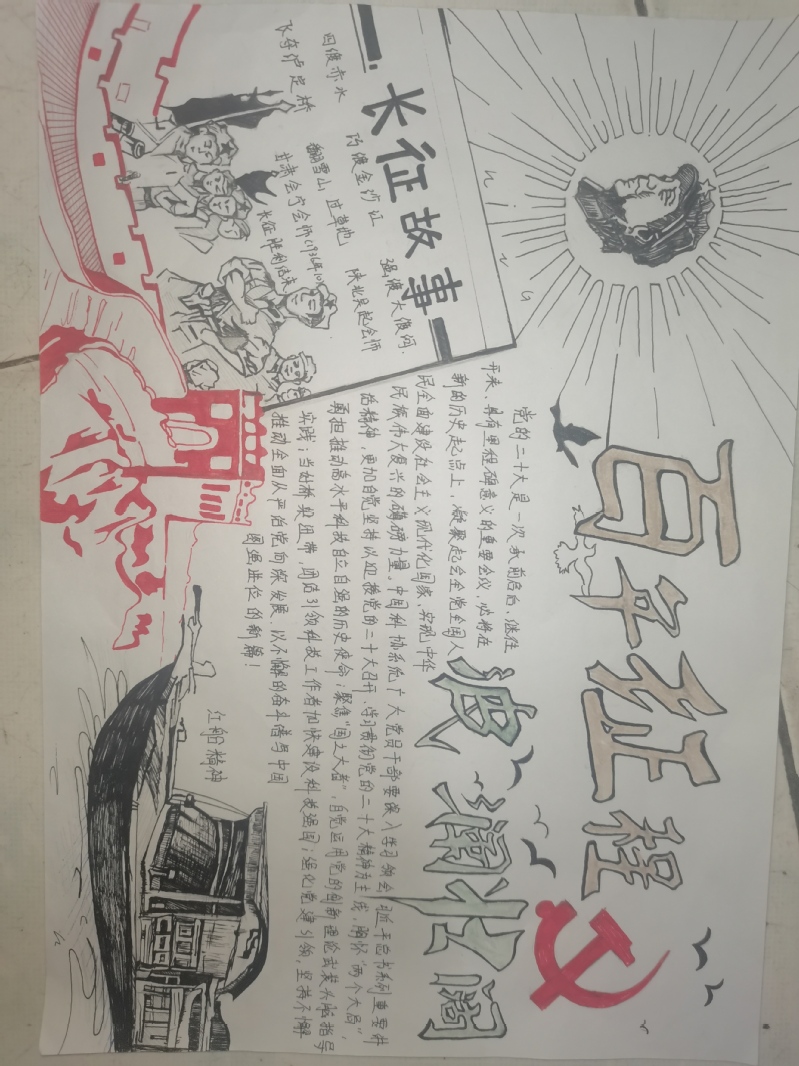 百年征程
波澜壮阔
长征故事
四渡赤水
巧渡金沙江
强渡大渡河.
飞夺泸定桥
翻雪山,过草地
陕北吴起会师
甘肃会宁会师(1936年10)
长征胜利结束
党的二十大是一次承前启后、继往
开来、具有里程碑意义的重要会议，必将在
新的历史起点上，凝聚起全党全国人
民全面建设社会主义现代化国家、实现中华
民族伟大复兴的磅礴力量。中国科协系统广大党员干部要深入学习领会习近平总书系列重要讲
话精神，更加自觉坚持以迎接党的二十大召开、学习贯彻党的二十大精神为主线，胸怀“两个大局”，
勇担推动高水平科技自立自强的历史使命；聚焦“国之大者”，自觉运用党的创新理论武装头脑指导
实践；当好桥梁纽带，团结引领科技工作者加快建设科技强国；强化党建引领，坚持不懈
推动全面从严治党向深发展、以不懈的奋斗谱写中国
图强进位的新篇！
红船精神